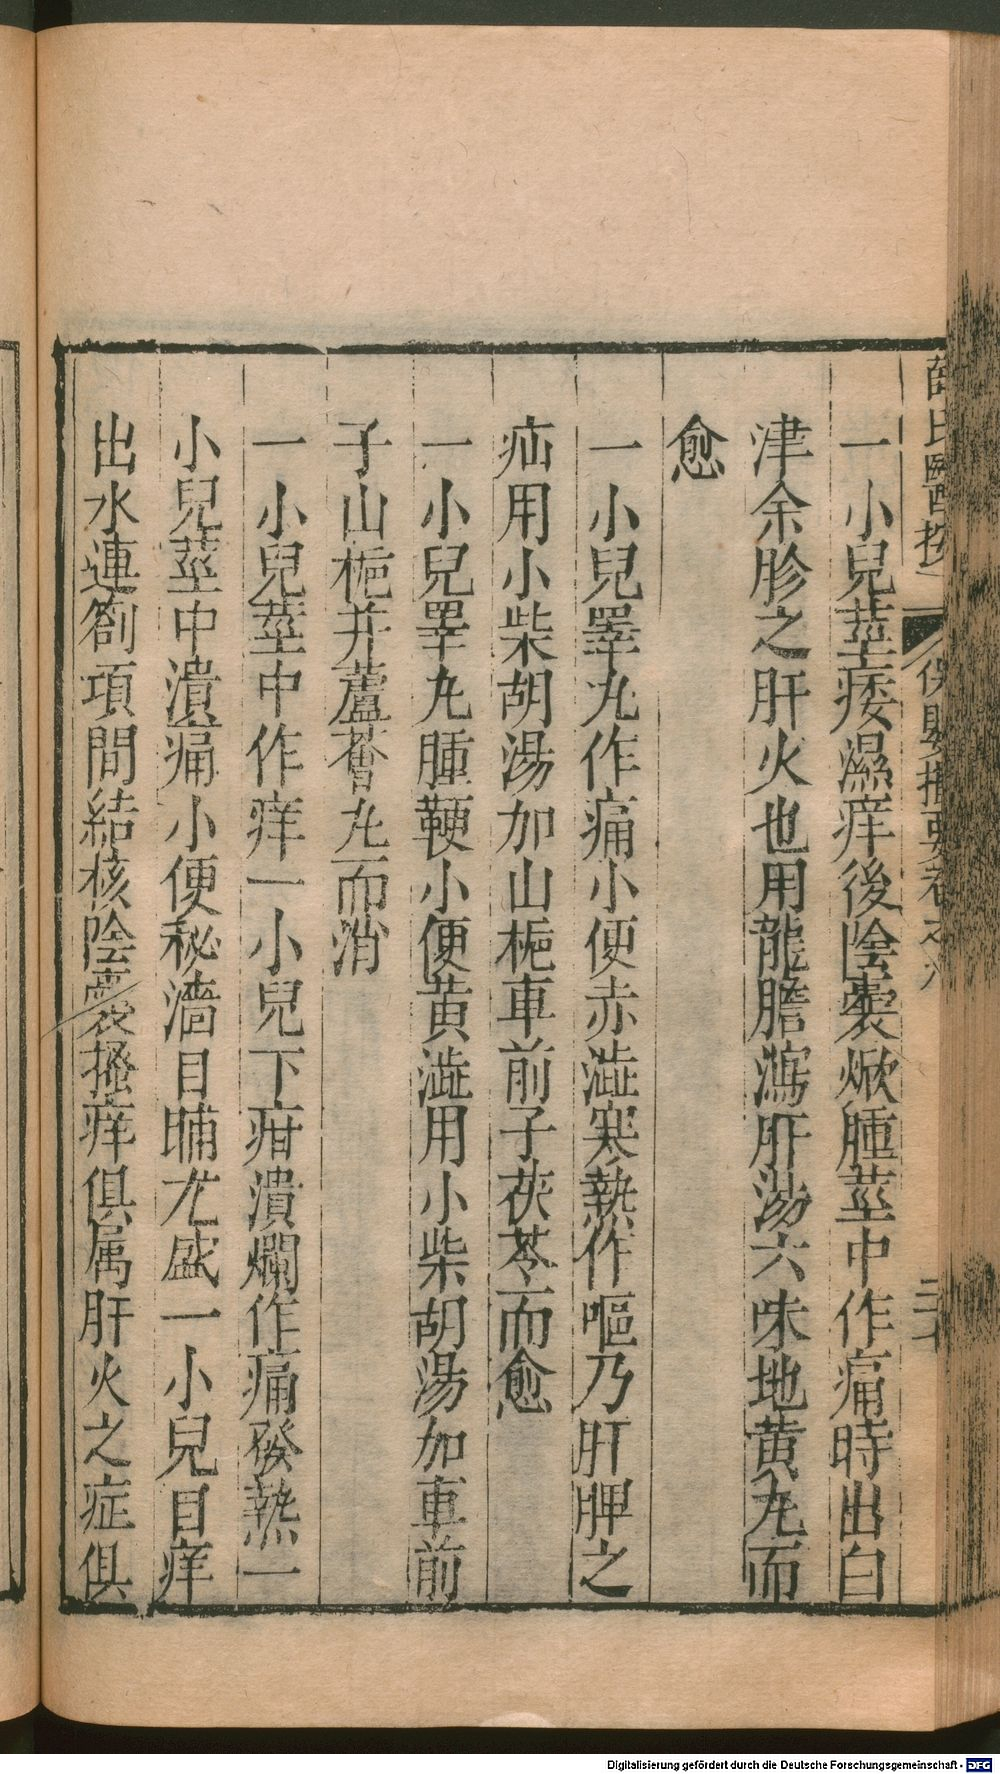 薛氏醫按 保嬰撮要卷之八
一小兒莖痿濕痒後陰囊焮腫莖中作痛時出白
津余胗之肝火也用龍膽瀉肝湯六味地黄丸而
愈
一小兒睾丸作痛小便赤澁寒熱作嘔乃肝脾之
疝用小柴胡湯加山梔車前子茯苓而愈
一小兒睾丸腫鞕小便黄澁用小柴胡湯加車前
子山梔并蘆薈丸而消
一小兒莖中作痒一小兒下疳潰爛作痛發熱一
小兒莖中潰痛小便秘濇日晡尤盛一小兒目痒
出水連劄項間結核陰囊搔痒俱属肝火之症俱
Digitalisierung gefördert durch die Deutsche Forschungsgemeinschaft - DFG